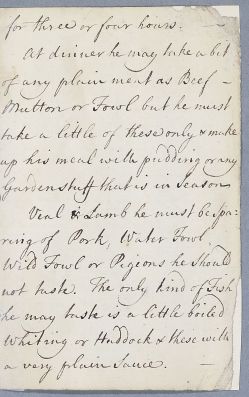 for three or four hours. —
At dinner he may take a bit
of any plain meat as Beef —
Mutton or Fowl but he must
take a little of these only & make
up his meal with pudding or any
Gardenstuff that is in Season
Veal & Lamb he must be spa-
ring of Pork, Water Fowl
Wild Fowl or Pigeons he should
not taste. The only kind of Fish
he may taste is a little boiled
Whiting or Haddock & these with
a very plain sauce.